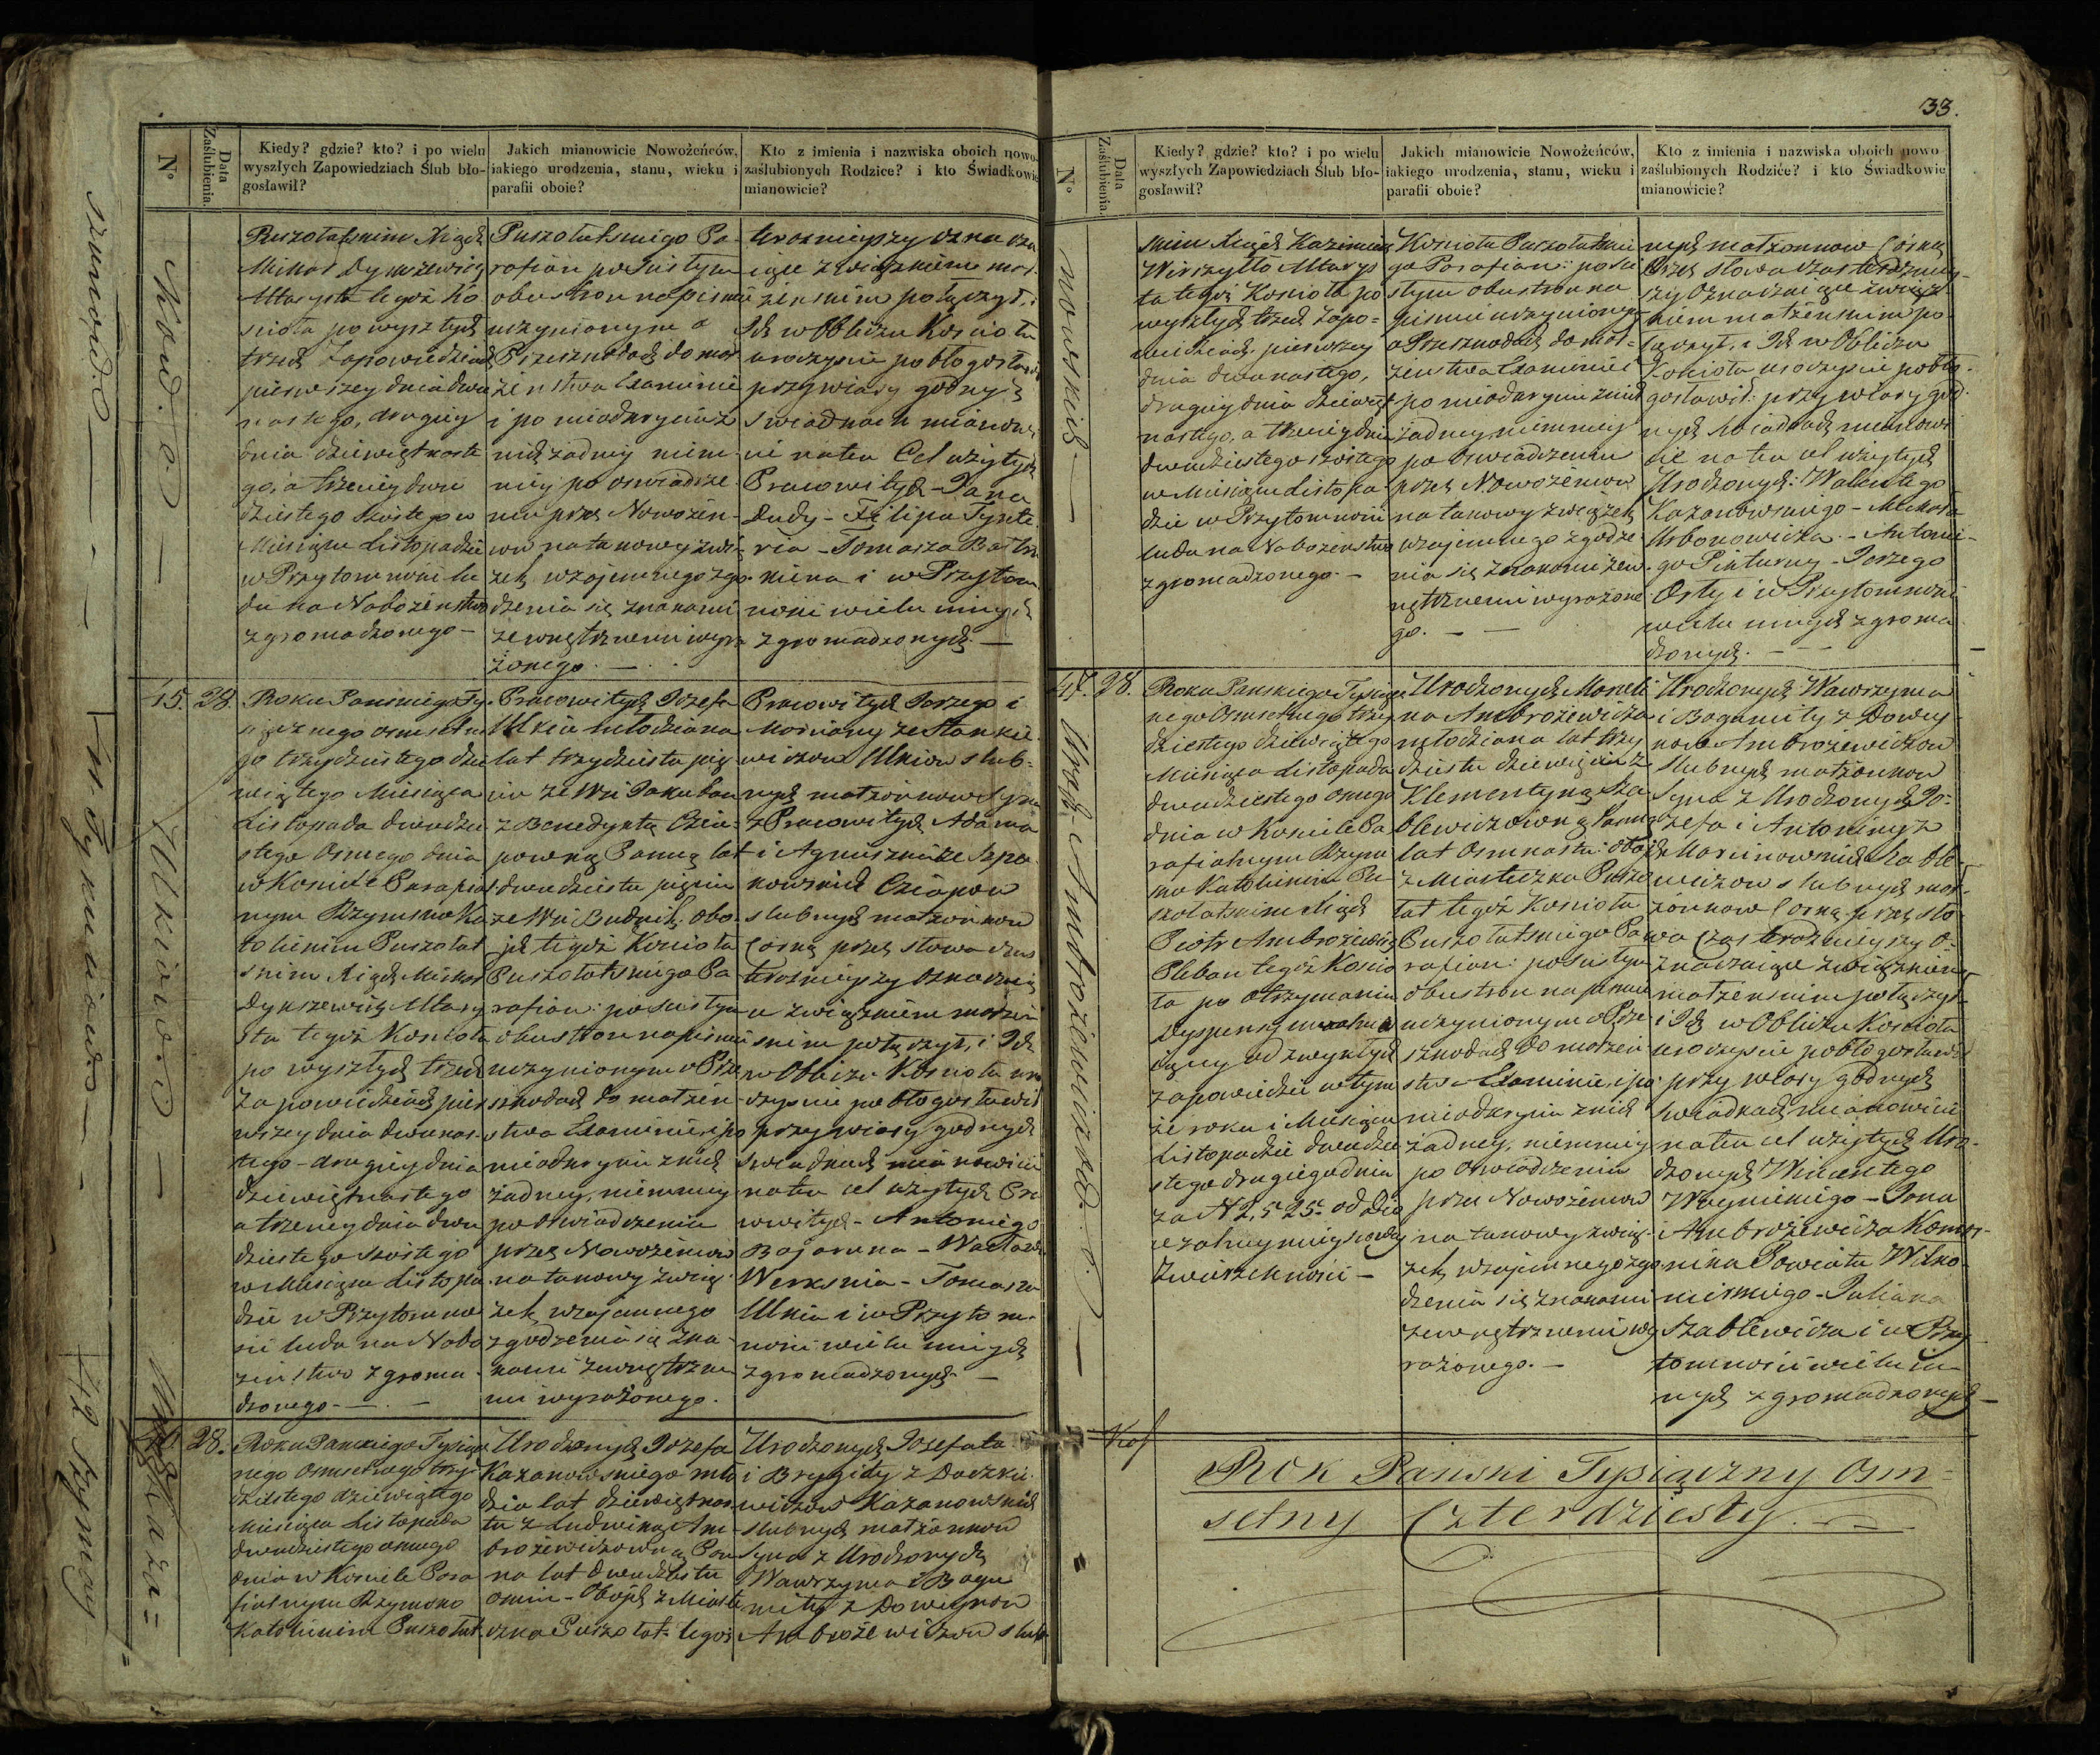 33.
N°
Data Zaślubienia.
Kiedy? gdzie? kto? i po wielu
wyszłych Zapowiedziach Ślub bło-
gosławił?
Jakich mianowicie Nowożeńców,
iakiego urodzenia, stanu, wieku i
parafii oboie?
Kto z imienia i nazwiska oboich nowo-
zaślubionych Rodzice? i kto Świadkowie
mianowicie?
Puszołatskim Xiądz
Michał Dymszewicz
Altarysta tegoż Ko
scioła po wyszłych
trzech Zapowiedziach
pierwszey dnia dwu
nastego, drugiey
dnia dziewiętnaste
go, a trzeciey dwu
dziestego szostego w
Miesiącu Listopadzie
w Przytomności lu
du na Nabożeństwo
zgromadzonego-
Puszołatskiego Pa-
rafian po ścisłym
obustron na pismie
uczynionym o
Przeszkodach do mał
żeństwa Examinie
i po nieodkryciu z
nich żadney niem-
niey po oswiadcze
niu przez Nowożeń-
ców na takowy zwią
zek wzajemnego zgo
dzenia się znakami
zewnętrznemi wyra
żonego. —
teraznieyszy oznacza
iące związkiem mał
żeńskim połączył, i
Ich w Obliczu Kościoła
uroczyscie pobłogosławił
przy wiary godnych
Swiadkach mianowi
cie na ten Cel użytych
Pracowitych - Jana
Dudy - Filipa Tynte
ria - Tomasza
i w Przytom
ności wielu innych
zgromadzonych —
15. 28.
Roku Pańskiego Ty-
siącznego osmsetne
go trzydziestego dzie
wiątego Miesiąca
Listopada dwudzie
stego Osmego dnia
w Kościele Parafial
nym Rzymsko Ka
tolickim Puszołat
skim Xiądz Michał
Dymszewicz Altary
sta tegoż Kościoła
po wyszłych trzech
Zapowiedziach pier
wszey dnia dwunas
tego - drugiey dnia
dziewiętnastego
a trzeciey dnia dwu
dziestego szóstego
w Miesiącu Listopa
dzie w Przytomno
ści ludu na Nabo
żeństwo zgroma
dzonego. —
Pracowitych Józefa
Ukia młodziana
lat trzydziestu pię
ciu ze Wsi Jakuban
z Benedyktą Czia-
powną Panną lat
dwudziestu pięciu
ze Wsi Budnik. obo-
jch tegoż Kościoła
Puszołatskiego Pa
rafian: po ścisłym
obustron na pismie
uczynionym o Prze
szkodach do małżeń
stwa Examinie, i po
nieodkryciu z nich
żadney, niemniey
po oswiadczeniu
przez Nowożeńców
na takowy zwią-
zek, wzajemnego
zgodzenia się zna
kami zewnętrzne
mi wyrażonego.
Pracowitych Jerzego i
Maryanny ze Stankie
wiczow Ukiow slub-
nych małżonkow Syna
z Pracowitych Adama
i Agnieszki ze Szpa
kowskich Cziapow
slubnych małżonkow
Córką przez słowa czas
teraznieyszy oznacza
ce związkiem małżeń
skim połączył, i Ich
w Obliczu Kościoła uro
czyscie pobłogosławił
przy wiary godnych
Swiadkach mianowicie
na ten cel użytych Pra
cowitych - Antoniego
Bajoruna - Wacława
Werksnia - Tomasza
Ukia i w Przytom-
ności wielu innych
zgromadzonych —
28.
Roku Pańskiego Tysiącz
nego Osmsetnego trzy-
dziestego dziewiątego
Miesiąca Listopada
dwudziestego osmego
dnia w Kościele Para
fialnym Rzymsko
Katolickim Puszołat
Urodzonych Józefa
Kazanowskiego mło
dzia lat dziewiętnas
tu z Ludwiką Am
brożewiczowną Pan
na lat dwudziestu
osmiu - Obojch z Miaste
czka Puszołat- tegoż
Urodzonych Josefata
i Brygidy z Daszkie
wiczow Kazanowskich
slubnych małżonkow
Syna z Urodzonych
Wawrzynca i Bogu
miły z Doweynow
Ambrożewiczow slub
N°
Data Zaślubienia.
Kiedy? gdzie? kto? i po wielu
wyszłych Zapowiedziach Ślub bło-
gosławił?
Jakich mianowicie Nowożeńców,
iakiego urodzenia, stanu, wieku i
parafii oboie?
Kto z imienia i nazwiska oboich nowo
zaślubionych Rodzice? i kto Świadkowie
mianowicie?
nowskich —
skim Xiądz Kazimierz
Wirszyłło Altarys
ta tegoż Kościoła po
wyszłych trzech Zapo-
wiedziach pierwszey
dnia dwunastego,
drugiey dnia dziewięt
nastego, a trzeciey dnia
dwudziestego szóstego
w Miesiącu Listopa
dzie w Przytomności
ludu na Nabożeństwo
zgromadzonego. —
Kościoła Puszołatskie
go Parafian: po ści
słym obustron na
pismie uczynionym
o Przeszkodach do mał-
żeństwa Examinie i
po nieodkryciu z nich
żadney, niemniey
po oswiadczeniu
przez Nowożeńcow
na takowy związek
wzajemnego zgodze
nia się znakami zew
nętrznemi wyrażone
go. — —
nych małżonkow Córką
Przez słowa czas teraźniey-
szy oznaczaiące związ-
kiem małżeńskim po-
łączył, i Ich w Obliczu
Kościoła uroczyscie pobło-
gosławił: przy wiary god-
nych Swiadkach mianowi
cie na ten cel użytych
Urodzonych: Walentego
Kazanowskiego - Michała
Urbonowicza. - Antonie-
go Pinturny - Jerzego
Osty i w Przytomności
wielu innych zgroma
dzonych. —
17. 28.
Roku Pańskiego Tysiącz
nego Osmsetnego trzy
dziestego dziewiątego
Miesiąca Listopada
dwudziestego osmego
dnia w Kościele Pa
rafialnym Rzym
sko Katolickim Pu
szołatskim Xiądz
Piotr Ambrożewicz
Pleban tegoż Kościo
ła po otrzymaniu
Dyspensy uwalnia
iącey od zwykłych
zapowiedzi w tym
że roku i Miesiącu
Listopadzie dwudzie
stego drugiego dnia
za N 2,525 od Die
cezalney mieyscowey
Zwierzchności —
Urodzonych Marceli
na Ambrożewicza
młodziana lat trzy
dziestu dziewięciu z
Klementyną Sza
blewiczowną Panną
lat Osmnastu: Obojch
z Miasteczka Puszo
łat tegoż Kościoła
Puszołatskiego Pa
rafian: po ścisłym
obustron na pismie
uczynionym o Prze
szkodach do małżeń
stwa Examinie, i po
nieodkryciu z nich
żadney, niemniey
po Oswiadczeniu
przez Nowożeńcow
na takowy zwią-
zek, wzajemnego zgo
dzenia się znakami
zewnętrznemi wy
rażonego. —
Urodzonych Wawrzynca
i Bogumiły z Dowey-
now Ambrożewiczow
Slubnych małżonkow
Syna z Urodzonych Jó-
zefa i Antoniny z
Marcinowskich Szable-
wiczow slubnych mał-
żonkow Córką przez sło-
wa Czas teraźnieyszy o-
znaczaiące związkiem
małżeńskim połączył
i Ich w Obliczu Kościoła
uroczyscie pobłogosławił
przy wiary godnych
Swiadkach mianowicie
na ten cel użytych Uro-
dzonych Wincentego
Woynickiego - Jana
Ambrożewicza Komor-
nika Powiatu Wiłko-
mierskiego - Juliana
Szablewicza i w Przy
tomności wielu in
nych zgromadzonych —
Urodz. Ambrożewiczow. —
Rok Pański Tysiączny Osm=
setny Czterdziesty. —